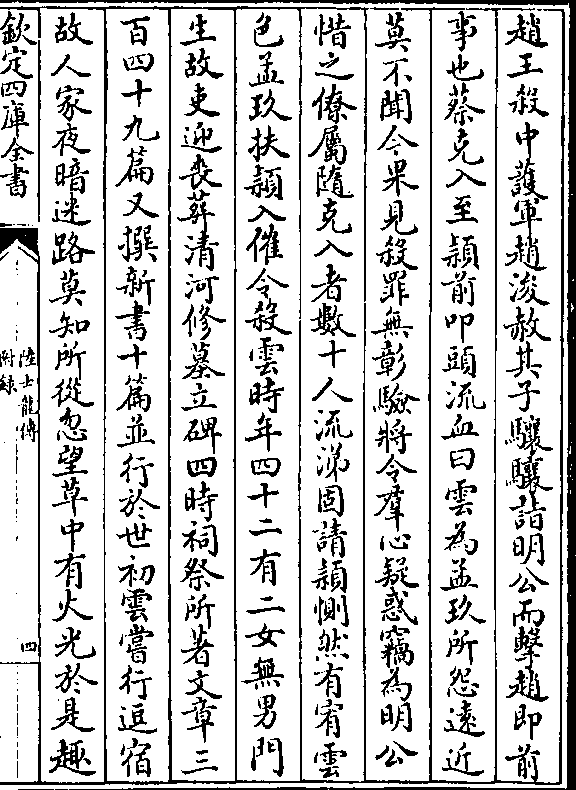 趙王殺中護軍趙浚赦其子驤驤詣明公而擊趙即前
事也蔡克入至頴前叩頭流血曰雲為孟玖所怨遠近
莫不聞今果見殺罪無彰驗將令羣心疑惑竊為明公
惜之僚屬隨克入者數十人流涕固請頴惻然有宥雲
色孟玖扶頴入催令殺雲時年四十二有二女無男門
生故吏迎喪葬清河修墓立碑四時祠祭所著文章三
百四十九篇又撰新書十篇並行於世初雲嘗行逗宿
故人家夜暗迷路莫知所從忽望草中有火光於是趣
欽定四庫全書
陸士龍傳
附錄
四